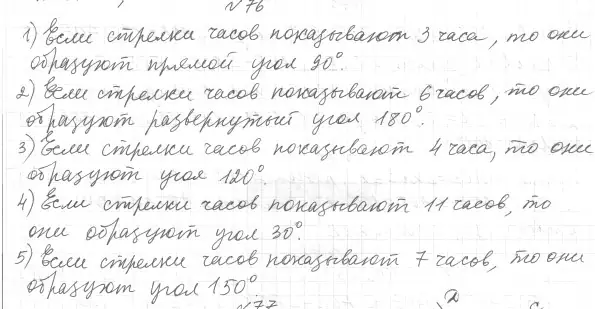 №76
1) Если стрелки часов показывают 3 часа, то они
образуют прямой угол 90°.
2) Если стрелки часов показывают 6 часов, то они
образуют развернутый угол 180°.
3) Если стрелки часов показывают 4 часа, то они
образуют угол 120°
4) Если стрелки часов показывают 11 часов, то
они образуют угол 30°.
5) Если стрелки часов показывают 7 часов, то они
образуют угол 150°
№77